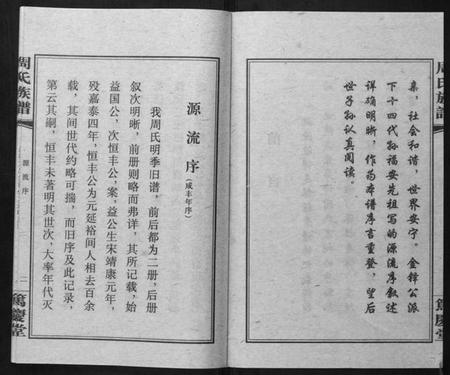 周氏族譜
業，社会和谐，世界安宁。金锋公派
下十四代孙福安先祖写的源流序叙述
详确明晰，作为本谱序言重登，望后
世子孙认真阅读。
篤慶堂
周氏族譜
源流序
二
篤慶堂
源流序（咸丰年序）
我周氏明季旧谱，前后都为二册，后册
叙次明晰，前册则略而弗详，其所记载，始
益国公，次恒丰公，案，益公生宋靖康元年，
殁嘉泰四年，恒丰公为元延裕间人相去百余
载，其间世代约略可揣，而旧序及此记录，
第云其嗣，恒丰未著明其世次，大率年代灭